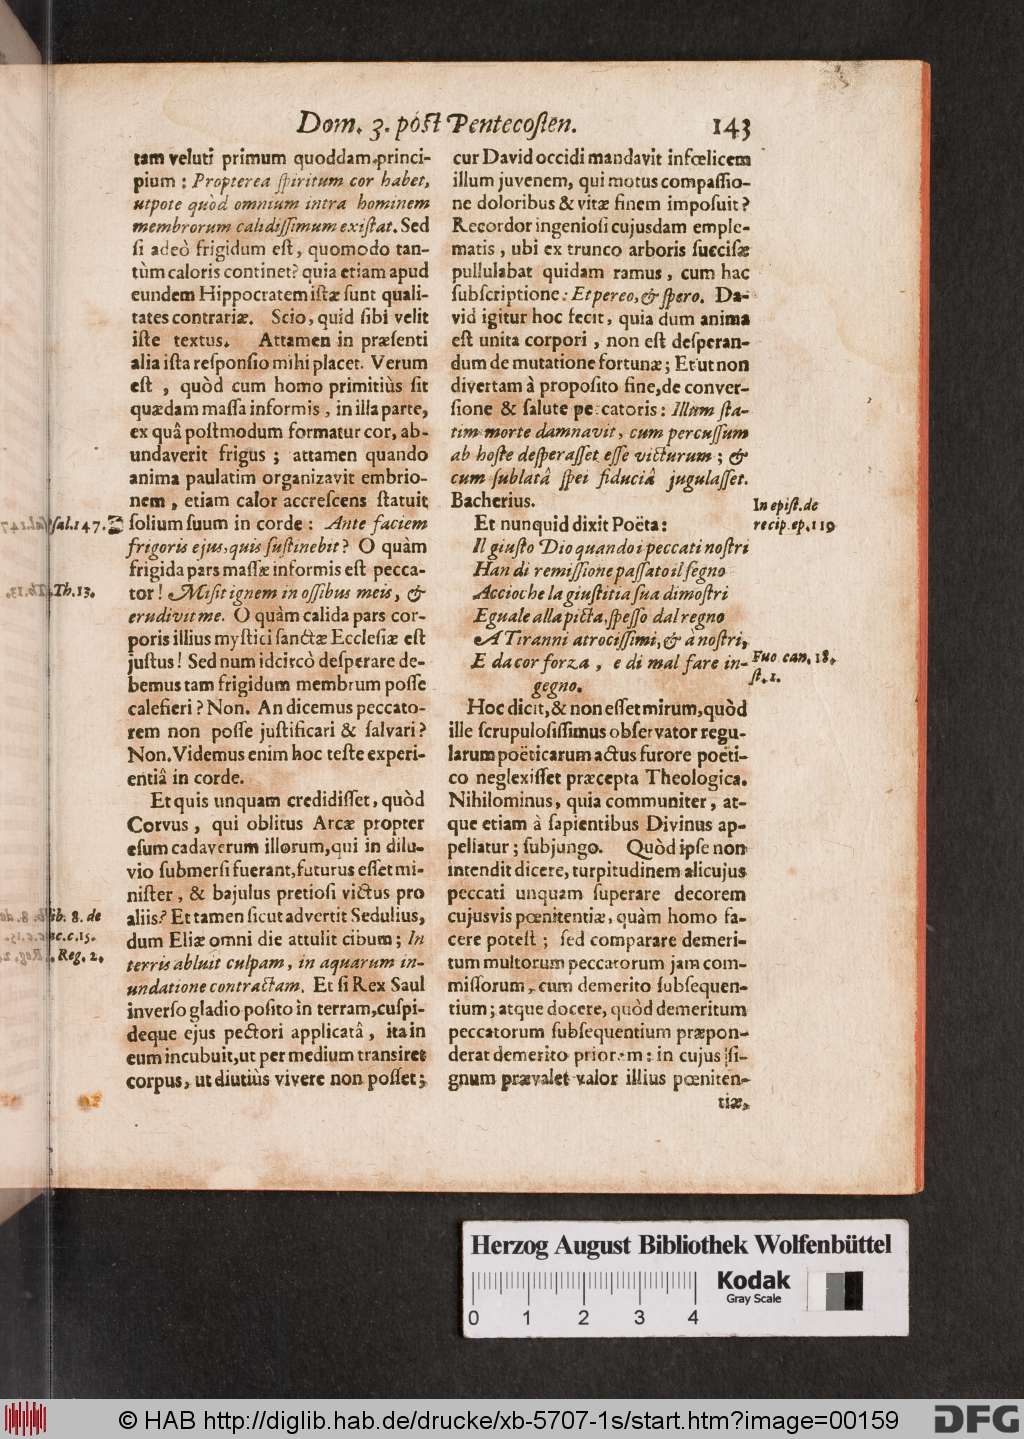 Dom. 3. póst Pentecosten. 143
tam veluti primum quoddam princi-
pium : Propterea ſpiritum cor habet,
utpote quòd omnium intra hominem
membrorum calidiſſimum exiſtat. Sed
ſi adeò frigidum eſt, quomodo tan-
tùm caloris continet? quia etiam apud
eundem Hippocratem iſtæ ſunt quali-
tates contrariæ. Scio, quid ſibi velit
iſte textus. Attamen in præſenti
alia iſta reſponſio mihi placet. Verum
eſt , quòd cum homo primitiùs ſit
quædam maſſa informis , in illa parte,
ex quâ poſtmodum formatur cor, ab-
undaverit frigus ; attamen quando
anima paulatim organizavit embrio-
nem , etiam calor accreſcens ſtatuit
ſolium ſuum in corde : Ante faciem
frigoris ejus, quis ſuſtinebit? O quàm
frigida pars maſſæ informis eſt pecca-
tor! Miſit ignem in oſſibus meis , &
erudivit me. O quàm calida pars cor-
poris illius myſtici ſanctæ Eccleſiæ eſt
juſtus! Sed num idcircò deſperare de-
bemus tam frigidum membrum poſſe
calefieri ? Non. An dicemus peccato-
rem non poſſe juſtificari & ſalvari?
Non. Videmus enim hoc teſte experi-
entiâ in corde.
Et quis unquam credidiſſet, quòd
Corvus , qui oblitus Arcæ propter
eſum cadaverum illorum, qui in dilu-
vio ſubmerſi fuerant, futurus eſſet mi-
niſter , & bajulus pretioſi victus pro
aliis? Et tamen ſicut advertit Sedulius,
dum Eliæ omni die attulit cibum; In
terris abluit culpam, in aquarum in-
undatione contractam. Et ſi Rex Saul
inverſo gladio poſito in terram, cuſpi-
deque ejus pectori applicatâ , ita in
eum incubuit, ut per medium transiret
corpus, ut diutiùs vivere non poſſet;
ſal.147.
Th.13.
ib. 8. de
c.c.15.
Reg. 2.
cur David occidi mandavit infœlicem
illum juvenem, qui motus compaſſio-
ne doloribus & vitæ finem impoſuit?
Recordor ingenioſi cujusdam emple-
matis , ubi ex trunco arboris ſucciſæ
pullulabat quidam ramus , cum hac
ſubſcriptione: Et pereo, & ſpero. Da-
vid igitur hoc fecit, quia dum anima
eſt unita corpori , non eſt deſperan-
dum de mutatione fortunæ; Et ut non
divertam à propoſito fine, de conver-
ſione & ſalute peccatoris: Illum ſta-
tim morte damnavit, cum percuſſum
ab hoſte deſperaſſet eſſe victurum ; &
cum ſublatâ ſpei fiduciâ jugulaſſet.
Bacherius.
Et nunquid dixit Poëta:
Il giuſto Dio quando i peccati noſtri
Han di remiſſione paſſato il ſegno
Accioche la giuſtitia ſua dimoſtri
Eguale alla pietà, ſpeſſo dal regno
A Tiranni atrociſſimi, & à noſtri,
E da cor forza , e di mal fare in-
gegno.
Hoc dicit, & non eſſet mirum, quòd
ille ſcrupuloſiſſimus obſervator regu-
larum poëticarum actus furore poëti-
co neglexiſſet præcepta Theologica.
Nihilominus, quia communiter, at-
que etiam à ſapientibus Divinus ap-
peliatur ; ſubjungo. Quòd ipſe non
intendit dicere, turpitudinem alicujus
peccati unquam ſuperare decorem
cujusvis pœnitentiæ, quàm homo fa-
cere poteſt ; ſed comparare demeri-
tum multorum peccatorum jam com-
miſſorum, cum demerito ſubſequen-
tium; atque docere, quòd demeritum
peccatorum ſubſequentium præpon-
derat demerito priorem: in cujus ſi-
gnum prævalet valor illius pœniten-
tiæ,
In epiſt. de
recip. ep. 119
Fuo can. 18.
ſt. 1.
Herzog August Bibliothek Wolfenbüttel
Kodak
Gray Scale
0 1 2 3 4
© HAB http://diglib.hab.de/drucke/xb-5707-1s/start.htm?image=00159
DFG